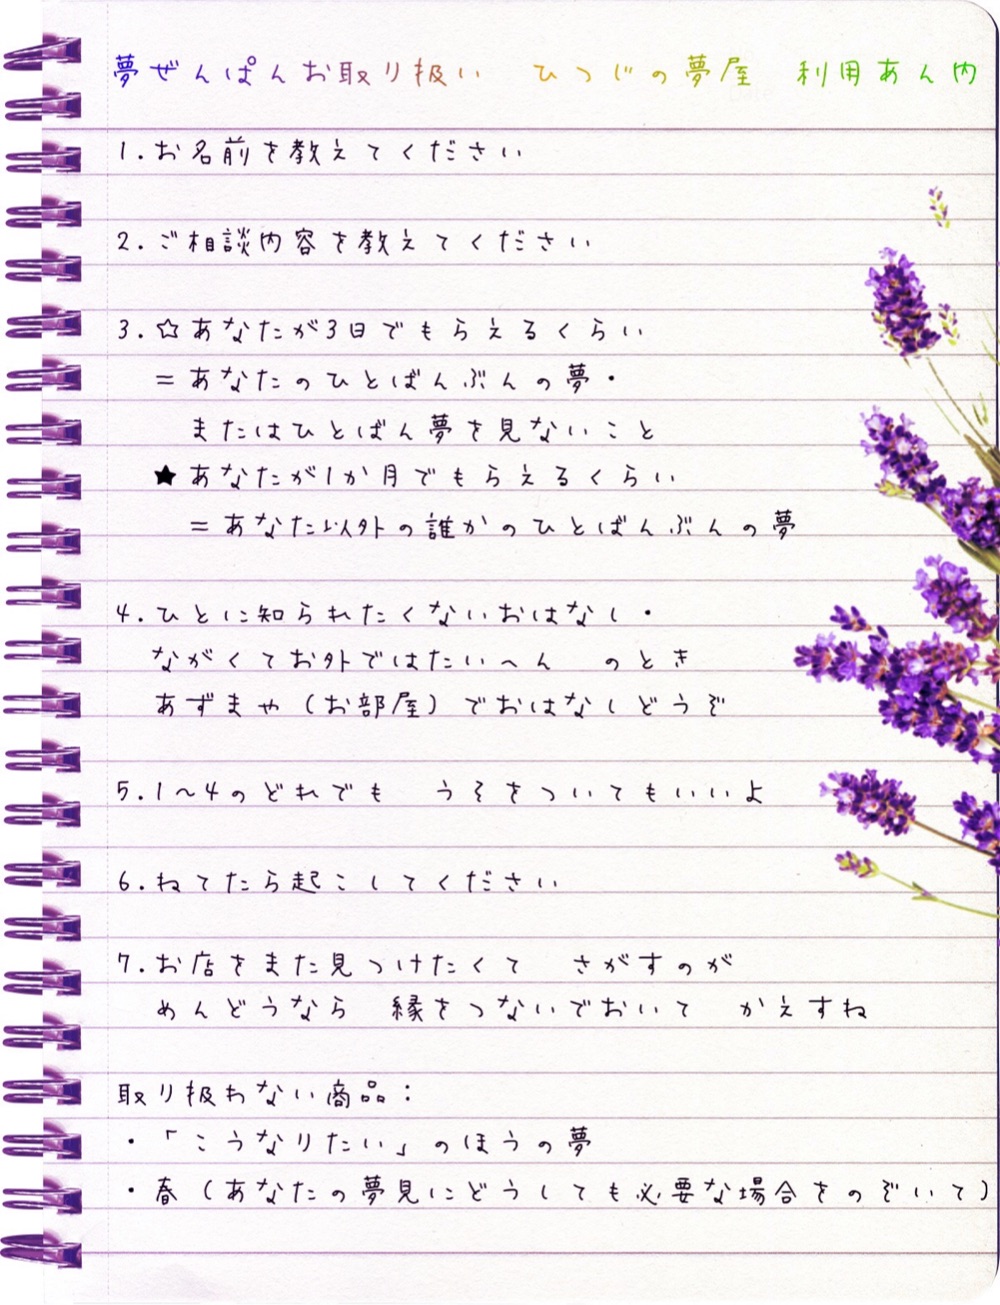 夢ぜんぱんお取り扱い　ひつじの夢屋　利用あん内
1.お名前を教えてください
2.ご相談内容を教えてください
3.☆あなたが3日でもらえるくらい
＝あなたのひとばんぶんの夢・
またはひとばん夢を見ないこと
★あなたが1か月でもらえるくらい
＝あなた以外の誰かのひとばんぶんの夢
4.ひとに知られたくないおはなし・
ながくてお外ではたいへん　のとき
あずまや（お部屋）でおはなしどうぞ
5.1〜4のどれでも　うそをついてもいいよ
6.ねてたら起こしてください
7.お店をまた見つけたくて　さがすのが
めんどうなら　縁をつないでおいて　かえすね
取り扱わない商品：
・「こうなりたい」のほうの夢
・春（あなたの夢見にどうしても必要な場合をのぞいて）